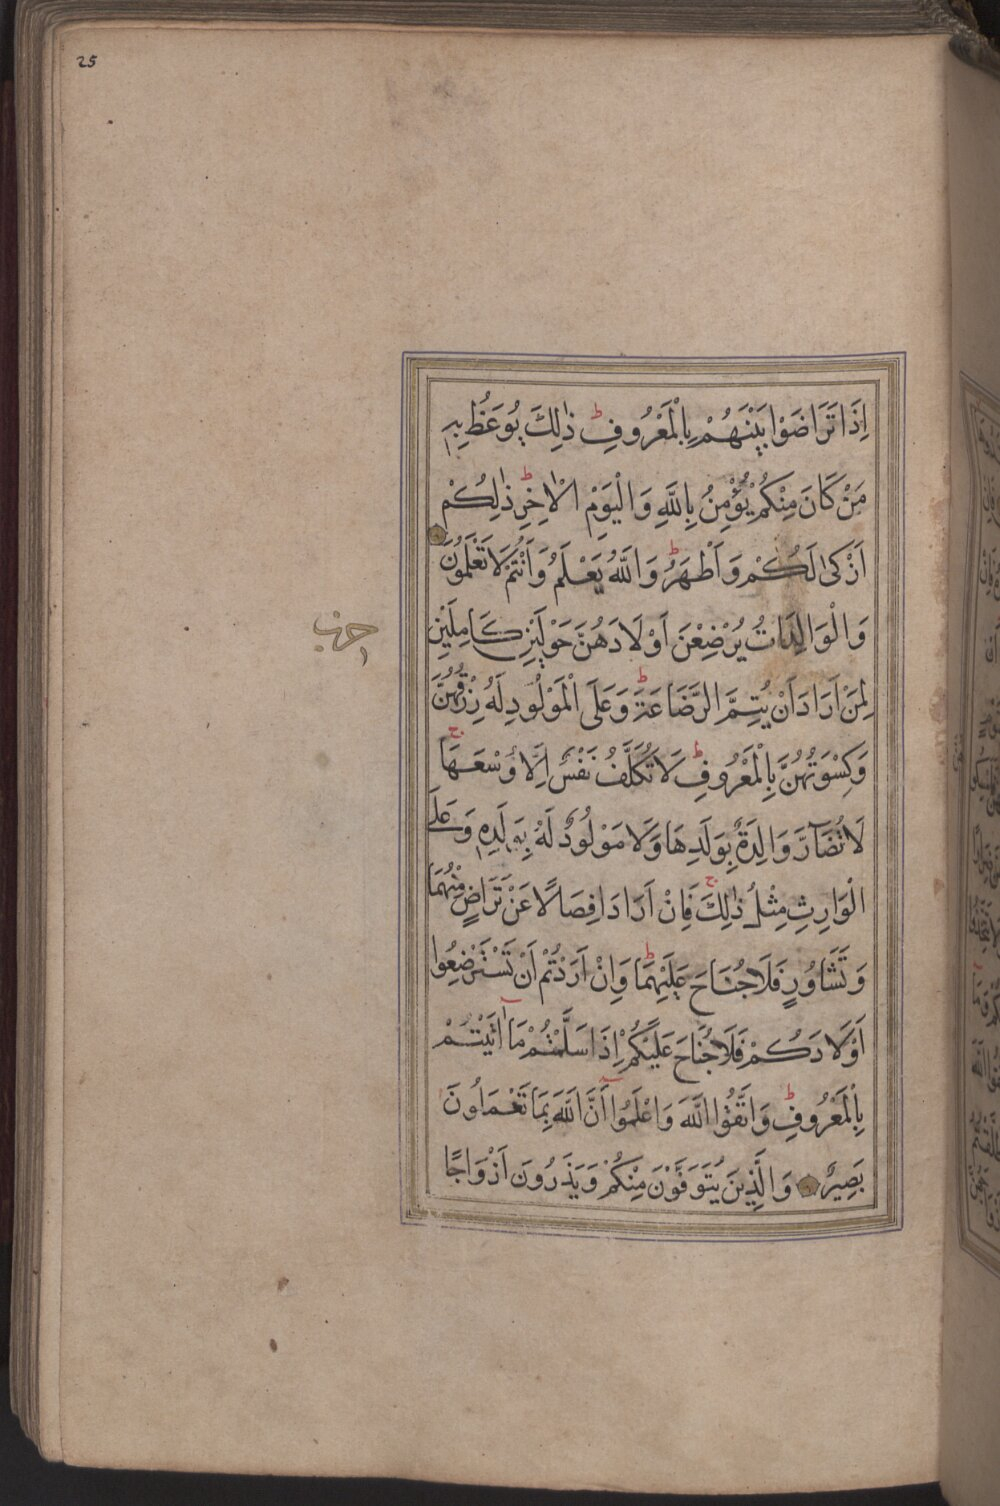 25
اِذَا تَرَاضَوْا بَيْنَهُمْ بِالْمَعْرُوفِ ط ذٰلِكَ يُوعَظُ بِهٖ
مَنْ كَانَ مِنْكُمْ يُؤْمِنُ بِاللّٰهِ وَالْيَوْمِ الْاٰخِرِ ط ذٰلِكُمْ
اَزْكٰى لَكُمْ وَاَطْهَرُ ط وَاللّٰهُ يَعْلَمُ وَاَنْتُمْ لَا تَعْلَمُونَ
وَالْوَالِدَاتُ يُرْضِعْنَ اَوْلَادَهُنَّ حَوْلَيْنِ كَامِلَيْنِ
حزب
لِمَنْ اَرَادَ اَنْ يُتِمَّ الرَّضَاعَةَ ط وَعَلَى الْمَوْلُودِ لَهُ رِزْقُهُنَّ
وَكِسْوَتُهُنَّ بِالْمَعْرُوفِ ط لَا تُكَلَّفُ نَفْسٌ اِلَّا وُسْعَهَا ج
لَا تُضَآرَّ وَالِدَةٌ بِوَلَدِهَا وَلَا مَوْلُودٌ لَهُ بِوَلَدِهٖ وَعَلَى
الْوَارِثِ مِثْلُ ذٰلِكَ ج فَاِنْ اَرَادَا فِصَالًا عَنْ تَرَاضٍ مِنْهُمَا
وَتَشَاوُرٍ فَلَا جُنَاحَ عَلَيْهِمَا ط وَاِنْ اَرَدْتُمْ اَنْ تَسْتَرْضِعُوا
اَوْلَادَكُمْ فَلَا جُنَاحَ عَلَيْكُمْ اِذَا سَلَّمْتُمْ مَآ اٰتَيْتُمْ
بِالْمَعْرُوفِ ط وَاتَّقُوا اللّٰهَ وَاعْلَمُوآ اَنَّ اللّٰهَ بِمَا تَعْمَلُونَ
بَصِيرٌ وَالَّذِينَ يُتَوَفَّوْنَ مِنْكُمْ وَيَذَرُونَ اَزْوَاجًا